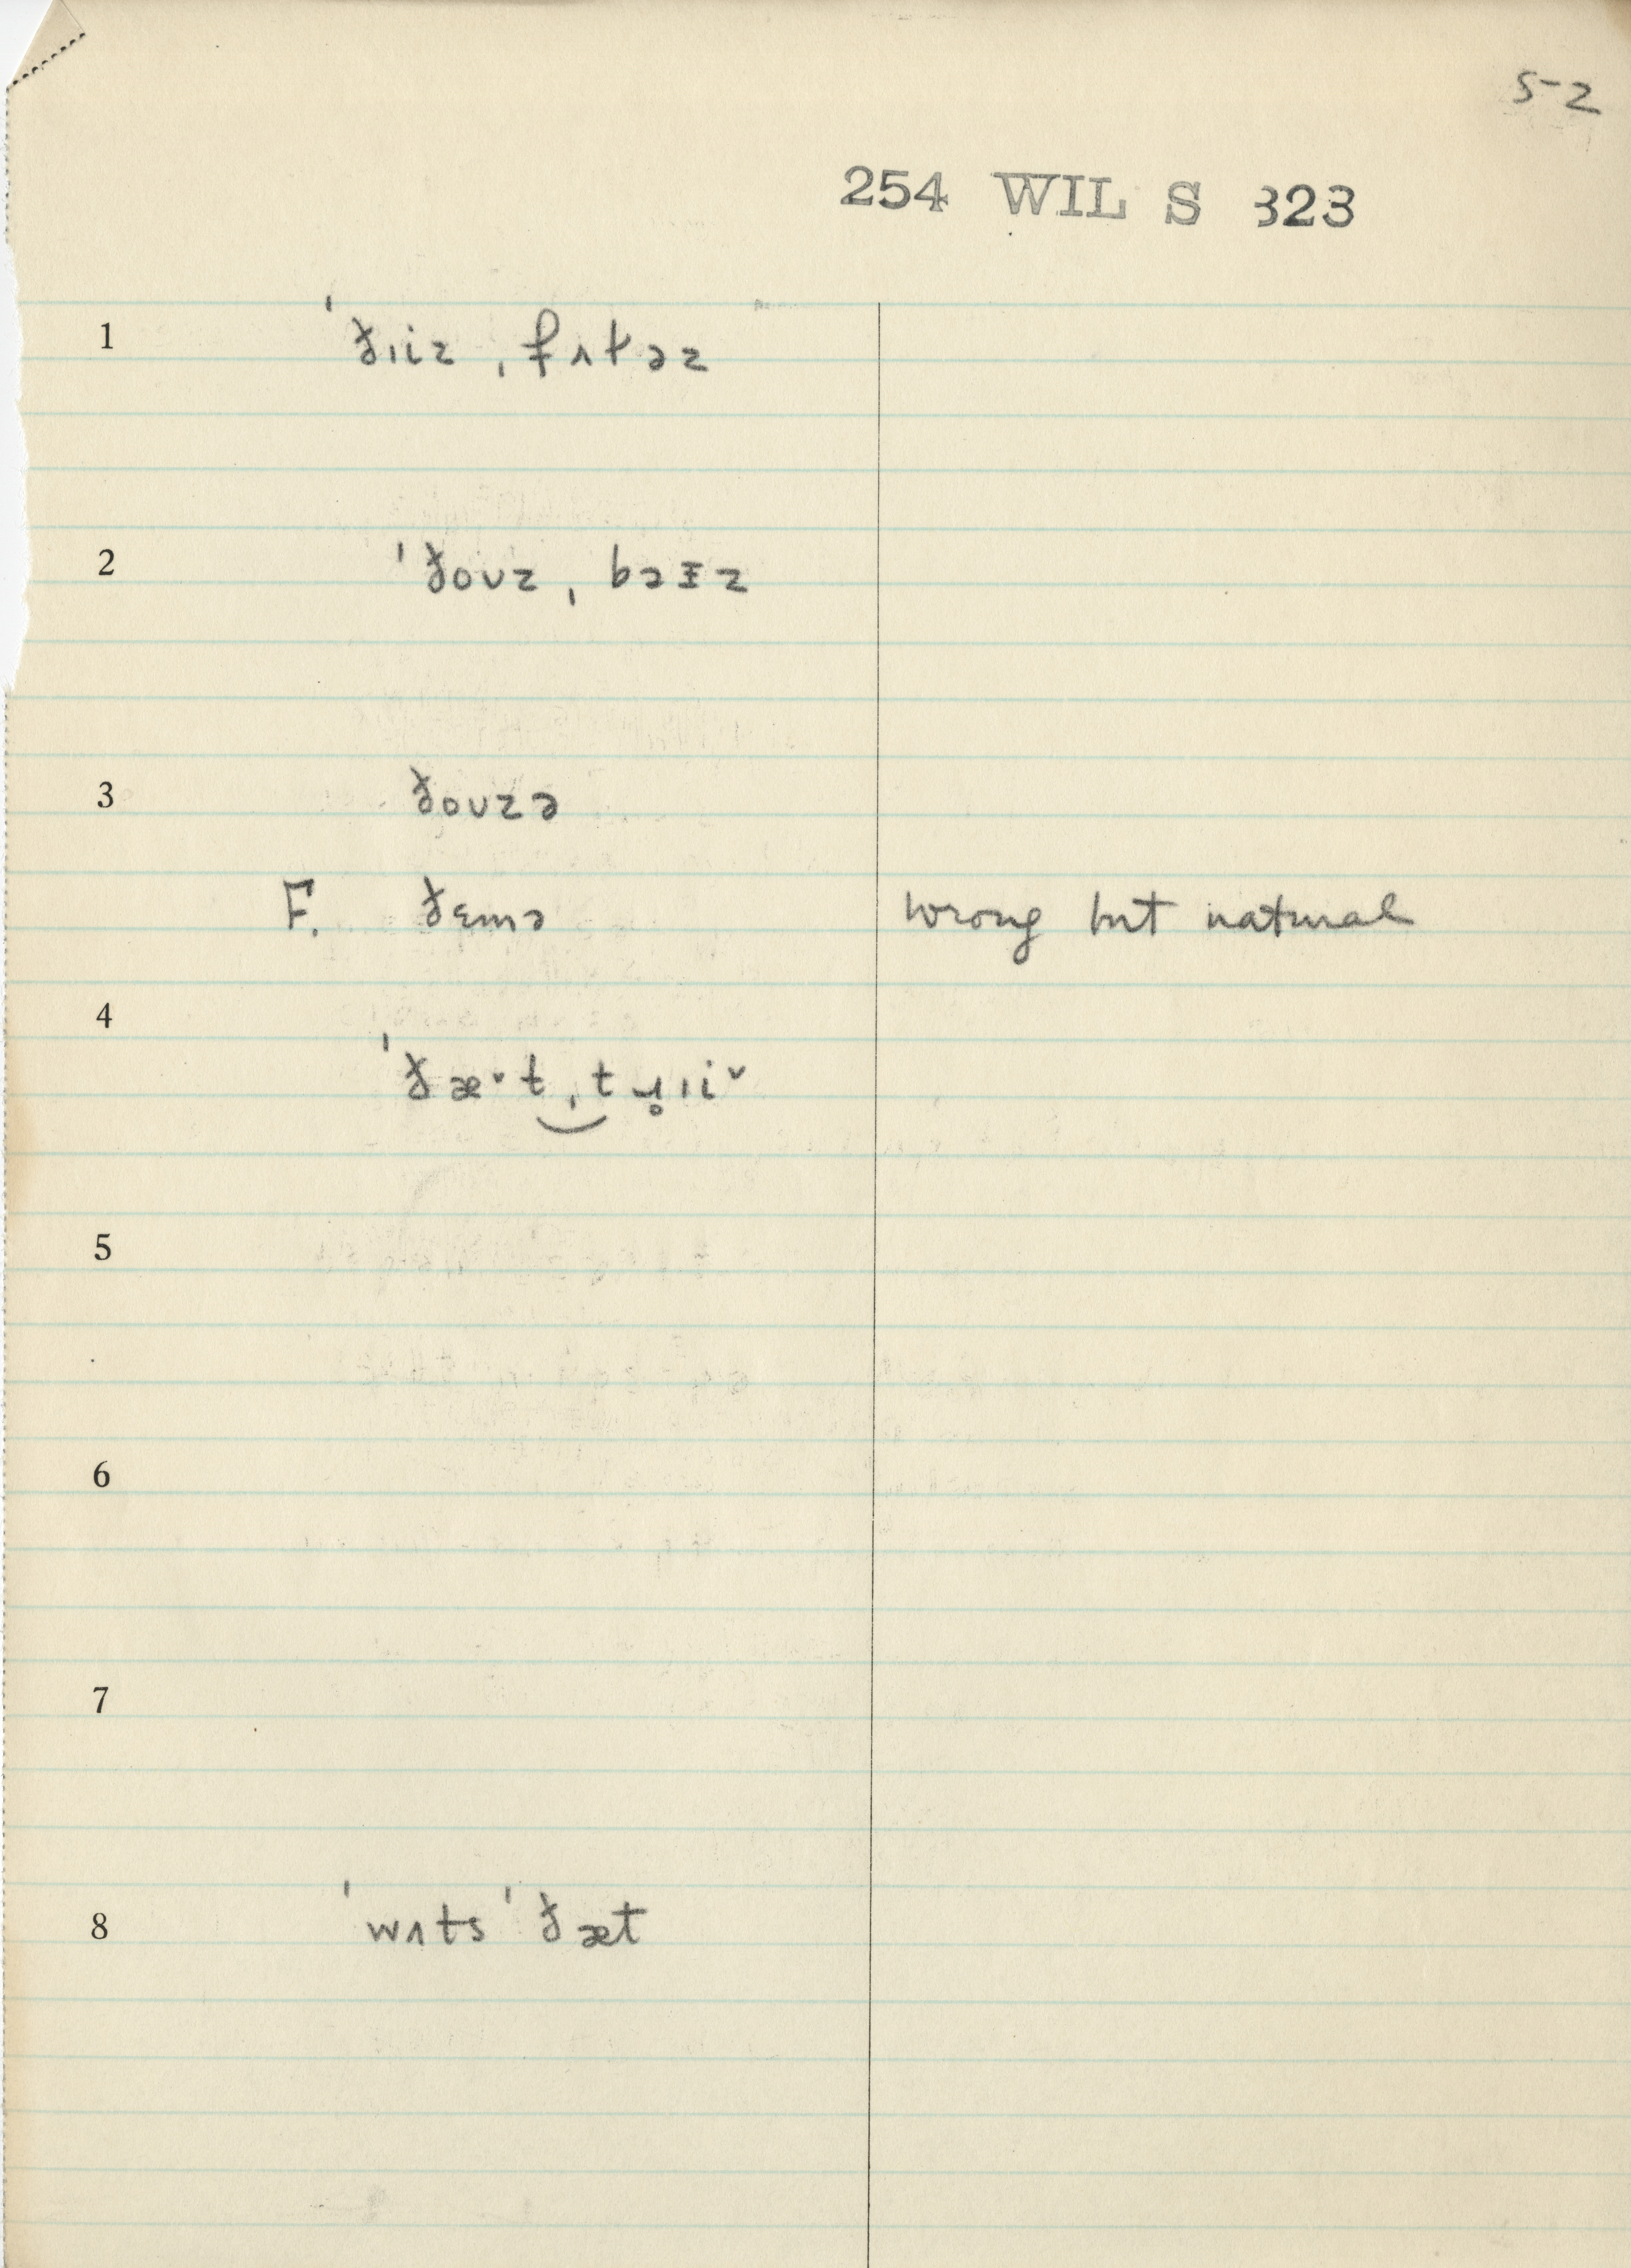 5-2
254 WIL S 323
1 ˈðɪiz ˌfɪɫəz
2 ˈðoʊz ˌbɔɪz
3 ðoʊzə
F. ðɛmə wrong but natural
4
ˈðæ˅t‿ˌtɹ̥ɪi˅
5
6
7
8 ˈwʌtsˈðæt